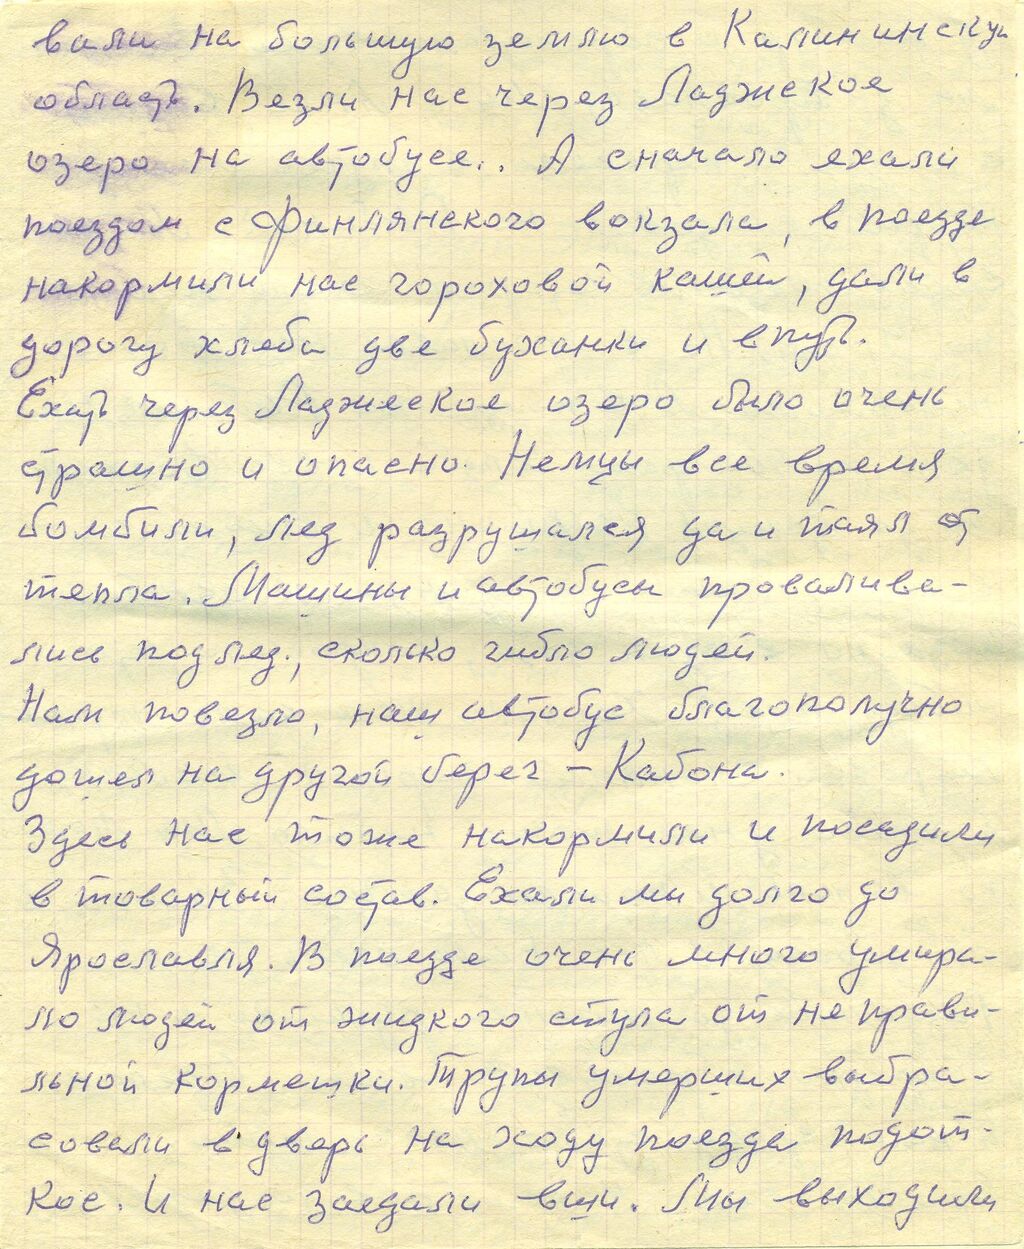 вали на большую землю в Калининскую
область. Везли нас через Ладжское
озеро на автобусе.. А сначало ехали
поездом с Финлянского вокзала, в поезде
накормили нас гороховой кашей, дали в
дорогу хлеба две буханки и в путь.
Ехать через Ладжеское озеро было очень
страшно и опасно. Немцы все время
бомбили, лед разрушался да и таял от
тепла. Машины и автобусы провалива-
лись под лед, сколько гибло людей.
Нам повезло, наш автобус благополучно
дошел на другой берег – Кабона.
Здесь нас тоже накормили и посадили
в товарный состав. Ехали мы долго до
Ярославля. В поезде очень много умира-
ло людей от жидкого стула от неправи-
льной кормешки. Трупы умерших выбра-
совали в дверь на ходу поезда подот-
кос. И нас заедали вши. Мы выходили